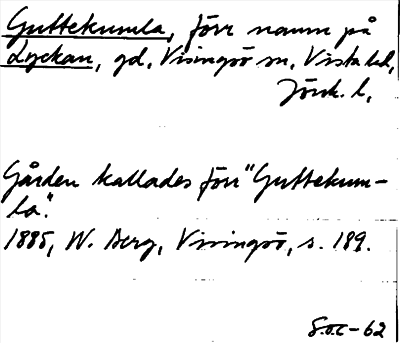 Guttekumla, förr namn på
Lyckan, gd, Visingsö sn, Vista hd,
Jönk. l,
Gården kallades förr "Guttekum-
la".
1885, W. Berg, Visingsö, s. 189.
S.O.C-62